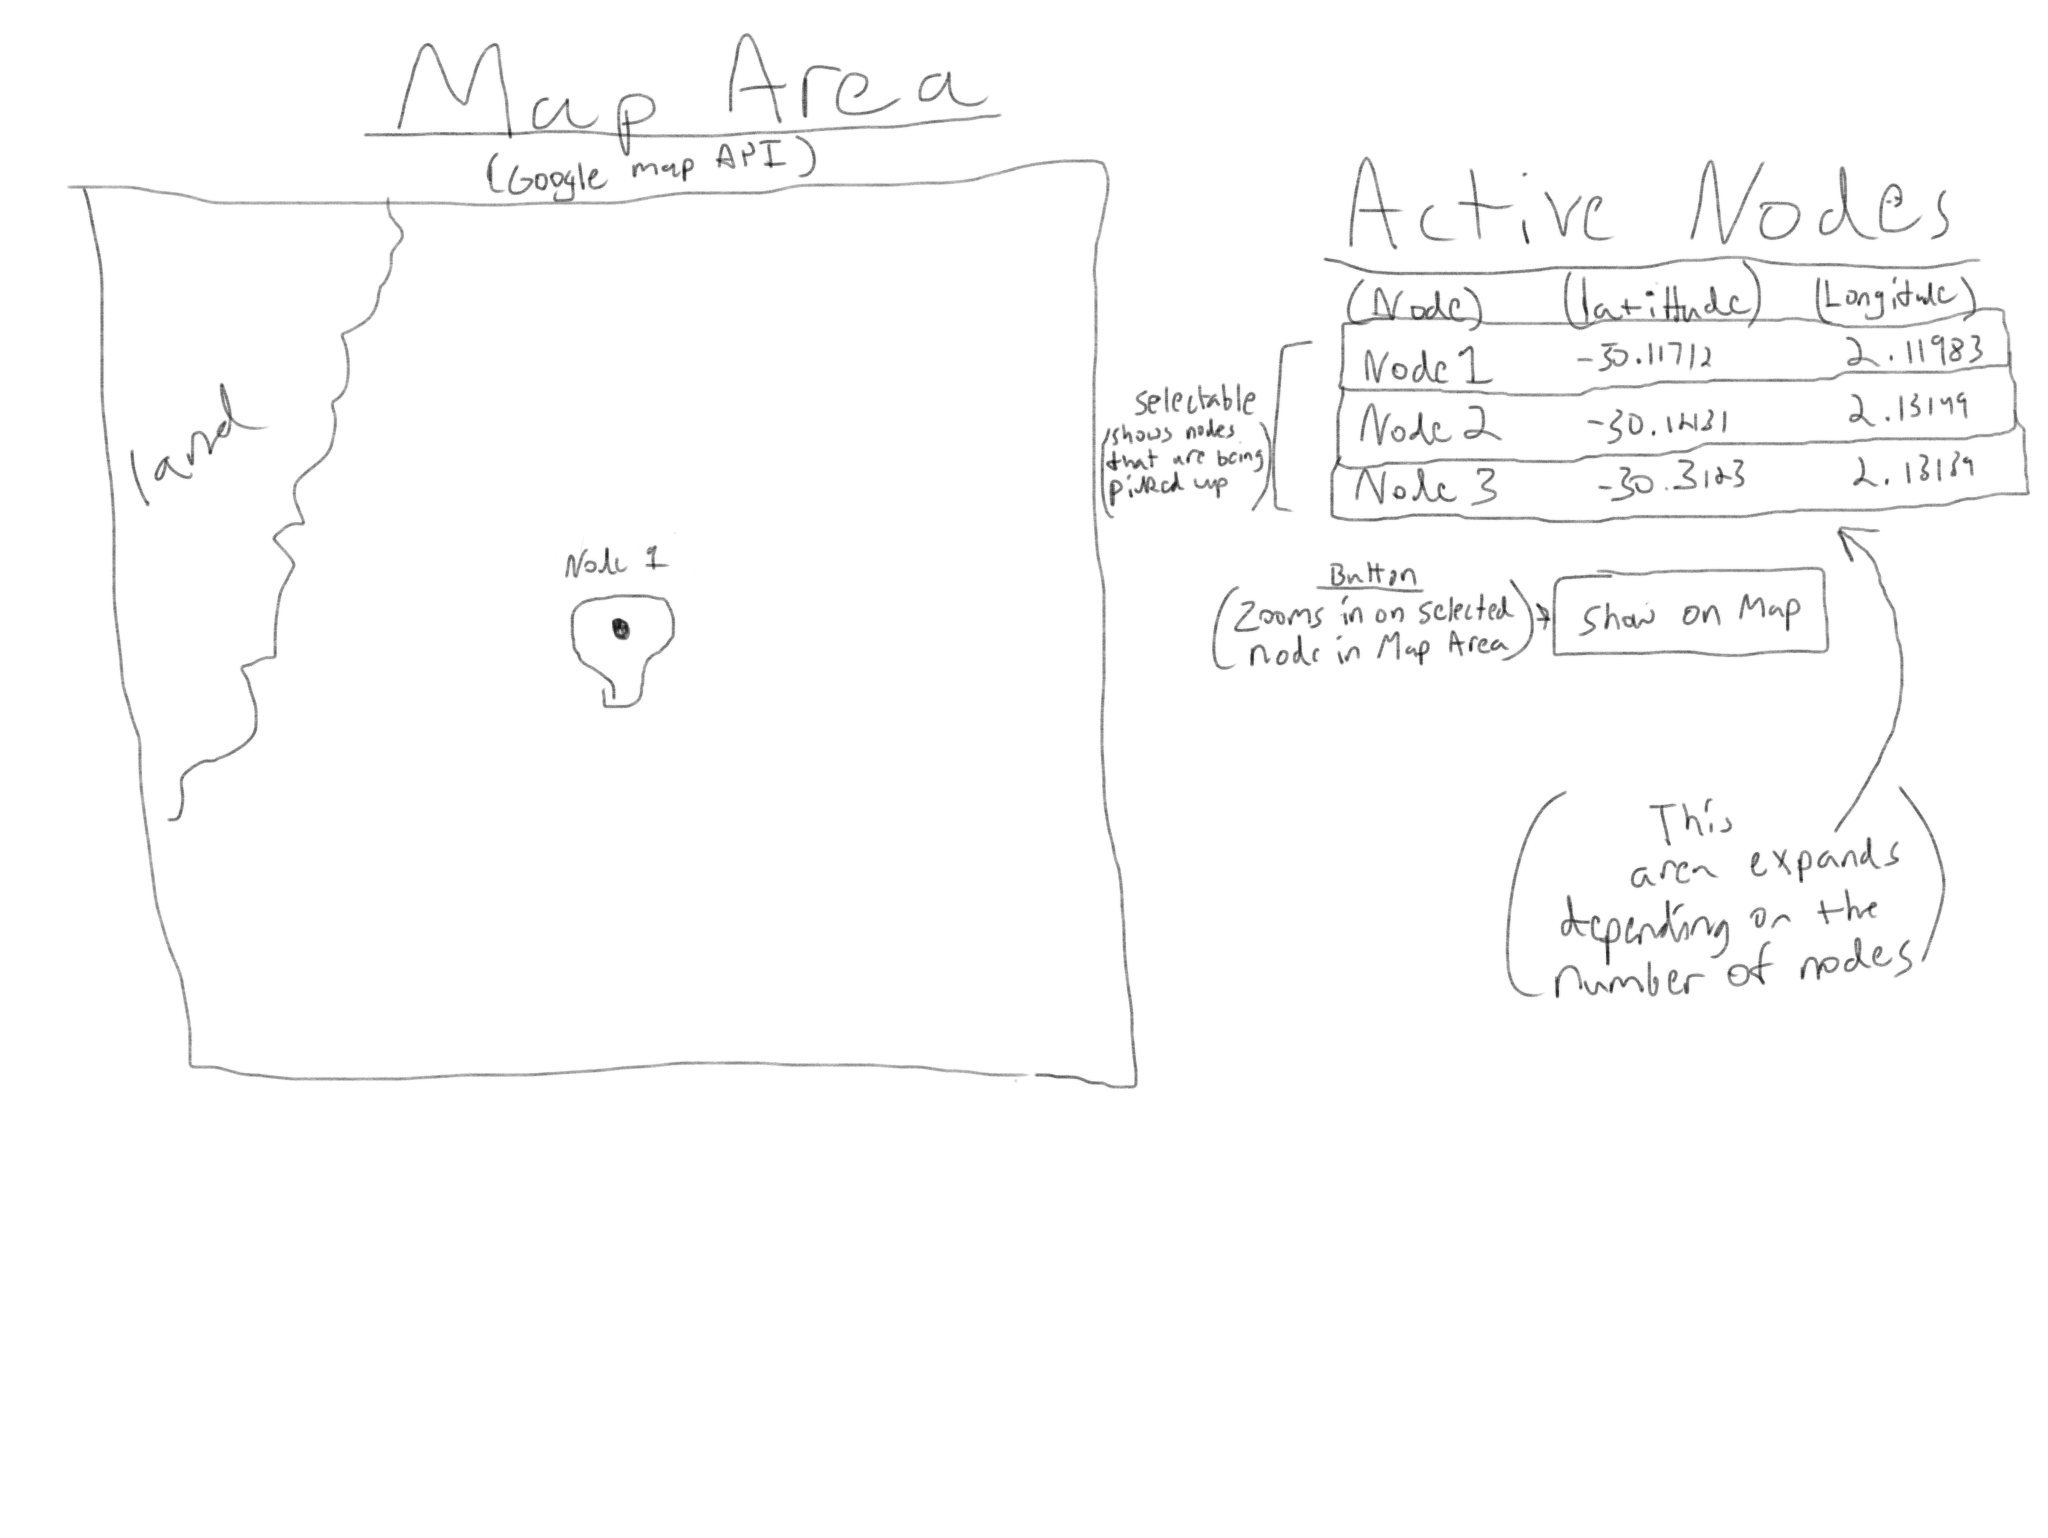 Map Area
(Google map API)
land
Node 1
Active Nodes
(Node) (latittude) (Longitude)
Node 1 -30.11712 2.11983
Node 2 2.13149
Node 3 -30.3123 2.13139
selectable
(shows nodes
that are being
picked up)
Button
(Zooms in on selected
node in Map Area)
Show on Map
(This
area expands
depending on the
number of nodes)